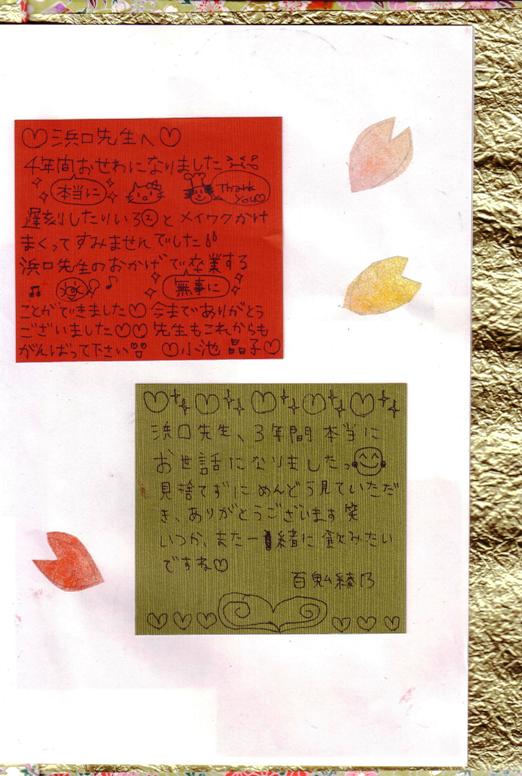 ♡浜口先生へ♡
4年間おせわになりました
本当に
Thank you♡
遅刻したりいろ②とメイワクかけ
まくってすみませんでした!!
浜口先生のおかげで卒業する
無事に
ことができました♡今までありがとう
ございました♡♡先生もこれからも
がんばって下さい!! ♡小池 晶子♡
浜口先生、3年間本当に
お世話になりましたっ
見捨てずにめんどう見ていただ
き、ありがとうございます笑
いつか、また一緒に飲みたい
ですね♡
百鬼綾乃